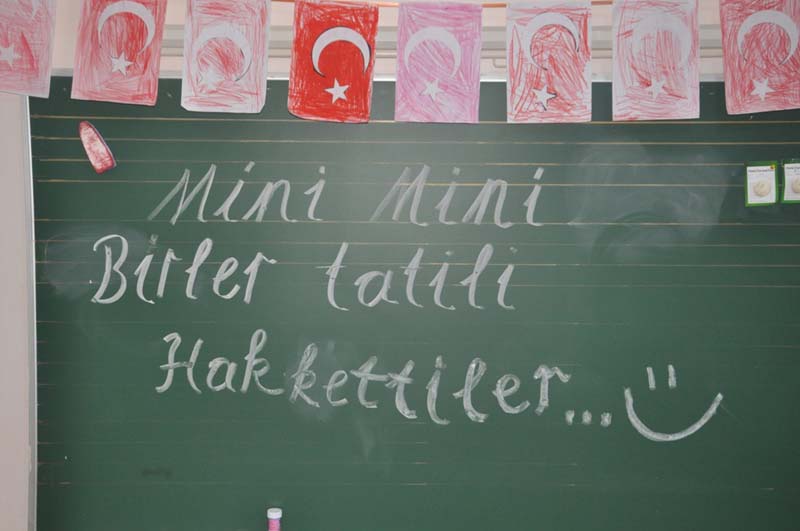 Mini Mini
Birler tatili
Hakkettiler...